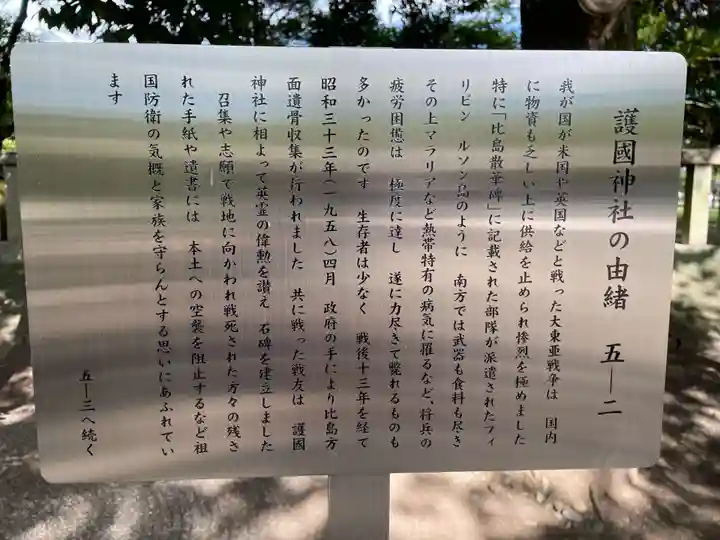 護國神社の由緒　五―二
我が国が米国や英国などと戦った大東亜戦争は　国内
に物資も乏しい上に供給を止められ惨烈を極めました
特に「比島散華碑」に記載された部隊が派遣されたフィ
リピン　ルソン島のように　南方では武器も食料も尽き
その上マラリアなど熱帯特有の病気に罹るなど、将兵の
疲労困憊は　極度に達し　遂に力尽きて斃れるものも
多かったのです　生存者は少なく　戦後十三年を経て
昭和三十三年(一九五八)四月　政府の手により比島方
面遺骨収集が行われました　共に戦った戦友は　護國
神社に相よって英霊の偉勲を讃え　石碑を建立しました
　召集や志願で戦地に向かわれ戦死された方々の残さ
れた手紙や遺書には　本土への空襲を阻止するなど祖
国防衛の気概と家族を守らんとする思いにあふれてい
ます
五―三へ続く